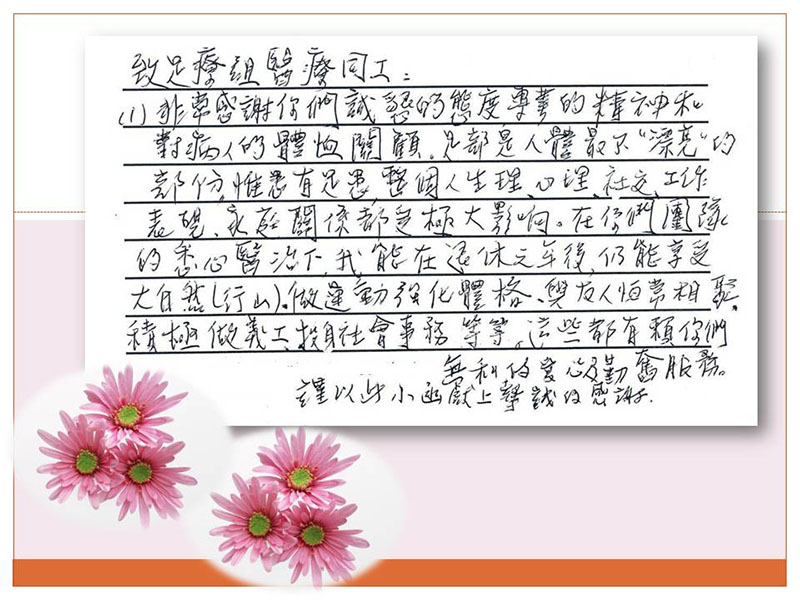 致足療組醫療同工：
(1) 非常感謝你們誠懇的態度，專業的精神和
對病人的體恤關顧。足部是人體最不"漂亮"的
部份，惟患有足患，整個人生理、心理、社交、工作
表現、家庭關係都受極大影响。在你們團隊
的悉心醫治下，我能在退休六年後，仍能享受
大自然(行山)。做運動強化體格、與友人恒常相聚，
積極做義工、投身社會事務等等。這些都有賴你們
無私的愛心及勤奮服務。
謹以此小函獻上摯誠的感謝。